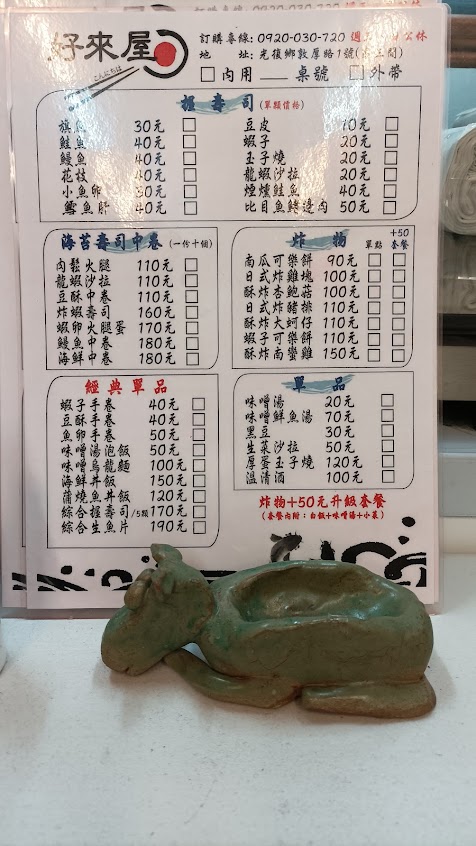 好來屋
こんにちは
訂購專線:0920-030-720
地 址:光復鄉敦厚路1號
內用 桌號 外帶
握壽司(單顆價格)
旗魚 30元
鮭魚 40元
鰻魚 40元
花枝 40元
小魚卵 30元
鱈魚肝 40元
豆皮 10元
蝦子 20元
玉子燒 20元
龍蝦沙拉 20元
煙燻鮭魚 40元
比目魚鰭邊肉 50元
海苔壽司中卷(一份十個)
肉鬆火腿 110元
龍蝦沙拉 110元
豆酥中卷 110元
炸蝦壽司 160元
蝦卵火腿蛋 170元
鰻魚中卷 180元
海鮮中卷 180元
炸物 單點 +50套餐
南瓜可樂餅 90元
日式炸雞塊 100元
酥炸杏鮑菇 100元
日式炸豬排 110元
酥炸大蚵仔 110元
蝦子可樂餅 110元
酥炸南蠻雞 150元
經典單品
蝦子手卷 40元
豆酥手卷 40元
魚卵手卷 50元
味噌湯泡飯 50元
味噌烏龍麵 100元
海鮮丼飯 150元
蒲燒魚丼飯 120元
綜合握壽司/5顆 170元
綜合生魚片 190元
單品
味噌湯 20元
味噌鮮魚湯 70元
黑豆 30元
生菜沙拉 50元
厚蛋玉子燒 120元
溫清酒 100元
炸物+50元升級套餐
(套餐內附:白飯+味噌湯+小菜)